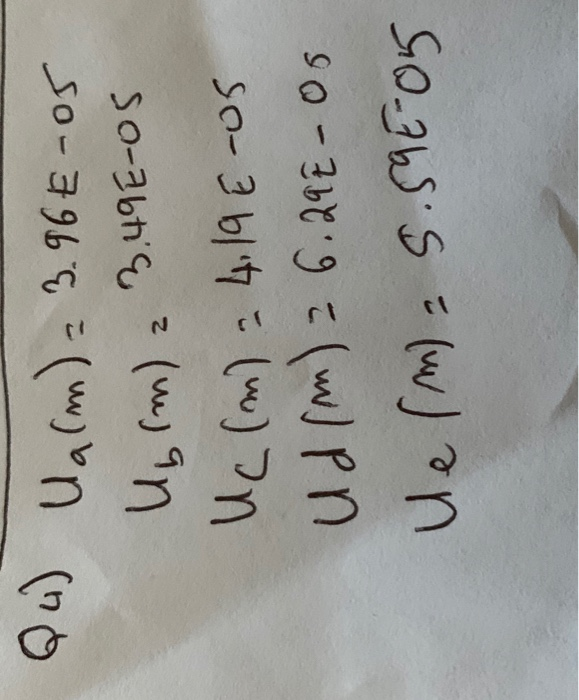 Q4) Ua(m) = 3.96E-05
Ub(m) = 3.49E-05
Uc(m) = 4.19E-05
Ud(m) = 6.29E-05
Ue(m) = 5.59E-05